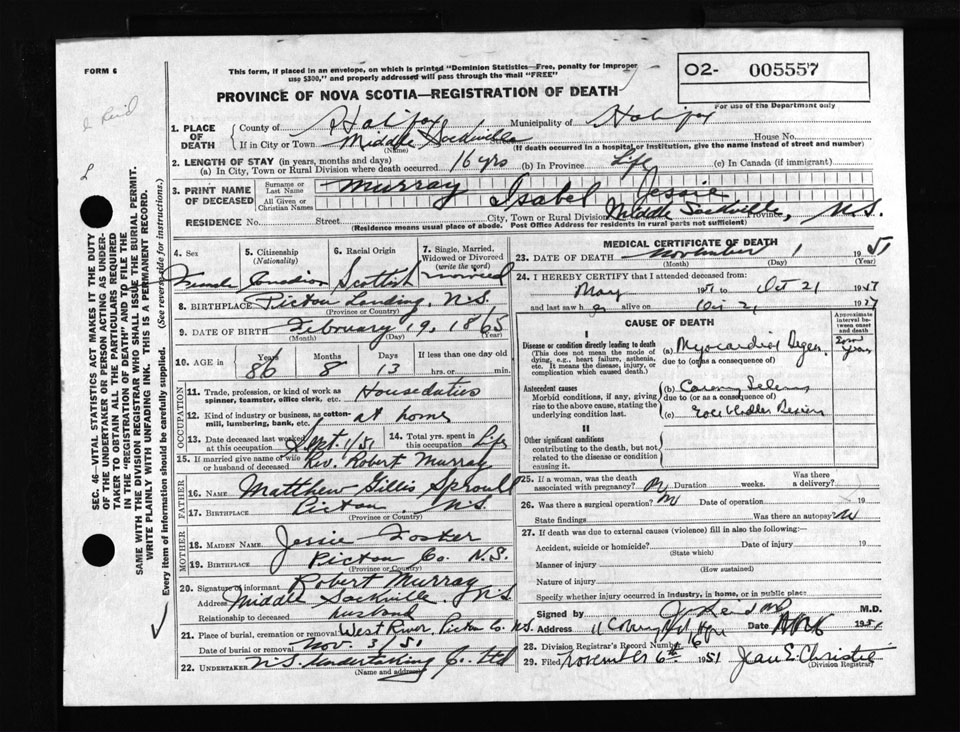 FORM 6
This form, if placed in an envelope, on which is printed "Dominion Statistics—Free, penalty for improper
use $300," and properly addressed will pass through the mail "FREE"
02- 005557
For use of the Department only
PROVINCE OF NOVA SCOTIA—REGISTRATION OF DEATH
Reid
1. PLACE OF DEATH
County of Halifax Municipality of Halifax
If in City or Town Middle Sackville Street House No.
(Name) (If death occurred in a hospital or institution, give the name instead of street and number)
2. LENGTH OF STAY (in years, months and days)
(a) In City, Town or Rural Division where death occurred 16 yrs (b) In Province Life (c) In Canada (if immigrant)
3. PRINT NAME OF DECEASED
Surname or Last Name Murray
All Given or Christian Names Isabel Jessie
RESIDENCE No. Street City, Town or Rural Division Middle Sackville, Province N.S.
(Residence means usual place of abode. Post Office Address for residents in rural parts not sufficient)
4. Sex Female
5. Citizenship (Nationality) Canadian
6. Racial Origin Scottish
7. Single, Married, Widowed or Divorced (write the word) married
8. BIRTHPLACE Pictou Landing, N.S.
(Province or Country)
9. DATE OF BIRTH February 19, 1865
(Month) (Day) (Year)
10. AGE in Years 86 Months 8 Days 13 If less than one day old hrs. or min.
OCCUPATION
11. Trade, profession, or kind of work as spinner, teamster, office clerk, etc. House duties
12. Kind of industry or business, as cotton-mill, lumbering, bank, etc. at home
13. Date deceased last worked at this occupation Sept. 1/51
14. Total yrs. spent in this occupation Life
15. If married give name of wife or husband of deceased Rev. Robert Murray
FATHER
16. Name Matthew Gillis Sproull
17. BIRTHPLACE Pictou, N.S.
(Province or Country)
MOTHER
18. MAIDEN NAME Jessie
19. BIRTHPLACE Pictou Co. N.S.
(Province or Country)
20. Signature of informant Robert Murray
Address Middle Sackville, N.S.
Relationship to deceased husband
21. Place of burial, cremation or removal West River, Pictou Co. N.S.
Date of burial or removal Nov. 3/51
22. UNDERTAKER N.S. Undertaking Co. Ltd
(Name and address)
MEDICAL CERTIFICATE OF DEATH
23. DATE OF DEATH November 1 1951
(Month) (Day) (Year)
24. I HEREBY CERTIFY that I attended deceased from:
May 1951 to Oct 21 1951
and last saw her alive on Oct 21 1951
CAUSE OF DEATH
Approximate interval between onset and death
I
Disease or condition directly leading to death
(This does not mean the mode of dying, e.g., heart failure, asthenia, etc. It means the disease, injury, or complication which caused death.)
(a) Myocardial Degen.
due to (or as a consequence of)
Antecedent causes
Morbid conditions, if any, giving rise to the above cause, stating the underlying condition last.
(b)
due to (or as a consequence of)
(c)
II
Other significant conditions
contributing to the death, but not related to the disease or condition causing it.
25. If a woman, was the death associated with pregnancy? No Duration weeks. Was there a delivery?
26. Was there a surgical operation? No Date of operation 19
State findings Was there an autopsy? No
27. If death was due to external causes (violence) fill in also the following:—
Accident, suicide or homicide? Date of injury 19
(State which)
Manner of injury
(How sustained)
Nature of injury
Specify whether injury occurred in industry, in home, or in public place
Signed by Reid MD M.D.
Address Date 1951
28. Division Registrar's Record Number 16
29. Filed November 6th 1951 Jean E. Christie
(Division Registrar)
SEC. 46—VITAL STATISTICS ACT MAKES IT THE DUTY
OF THE UNDERTAKER OR PERSON ACTING AS UNDER-
TAKER TO OBTAIN ALL THE PARTICULARS REQUIRED
IN THE "REGISTRATION OF DEATH" AND TO FILE THE
SAME WITH THE DIVISION REGISTRAR WHO SHALL ISSUE THE BURIAL PERMIT.
WRITE PLAINLY WITH UNFADING INK. THIS IS A PERMANENT RECORD.
Every item of information should be carefully supplied. (See reverse side for instructions.)